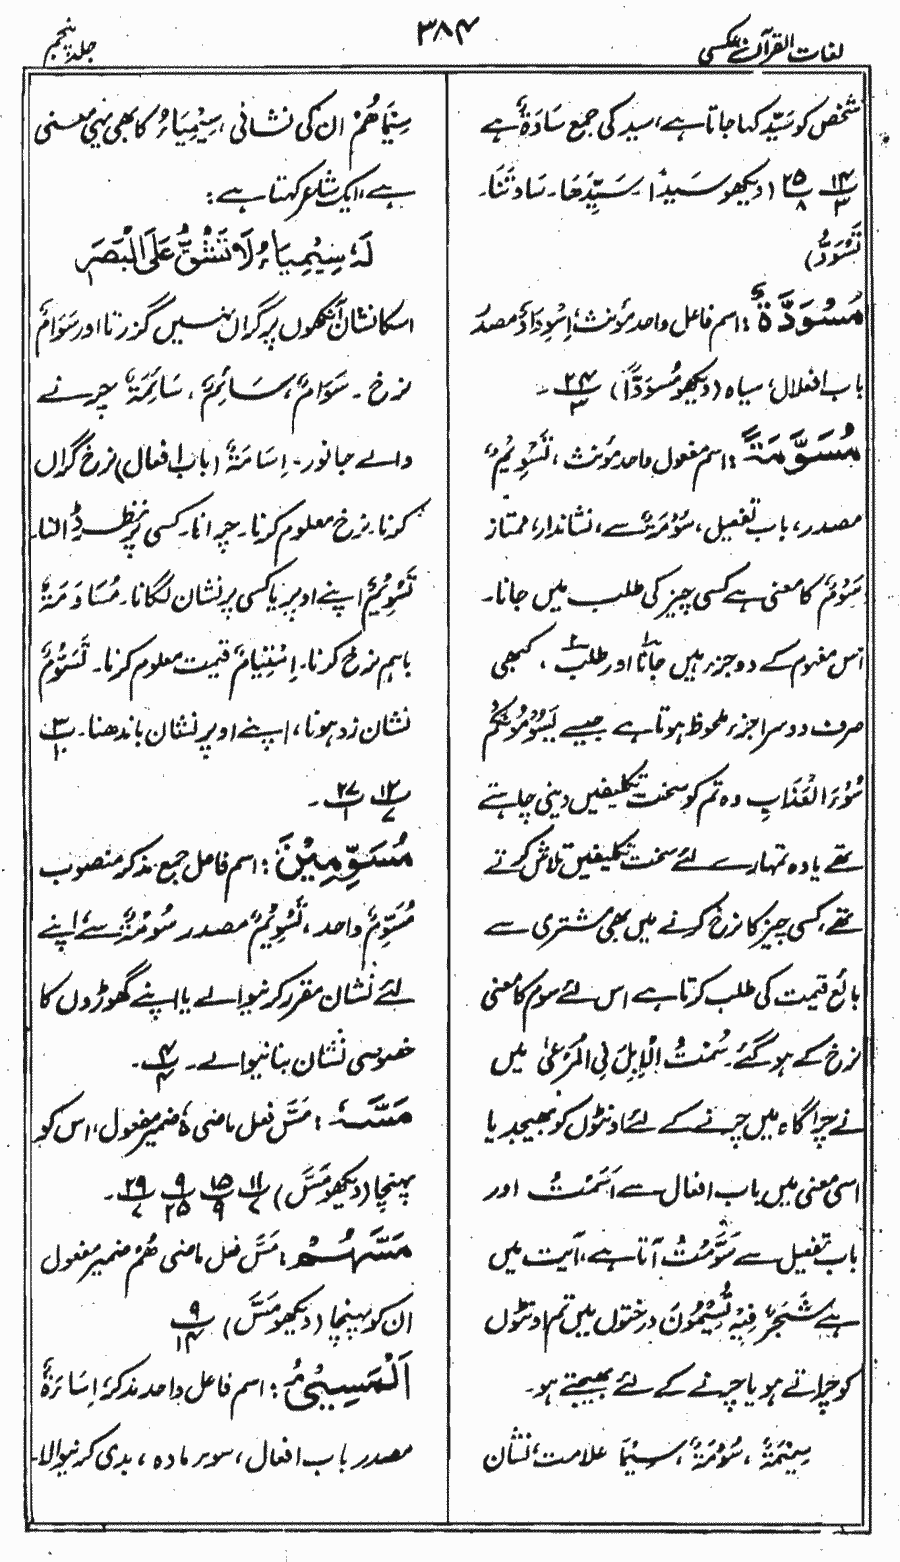 لغات القرآن عکسی
۳۸۴
جلد پنجم
شخص کو سَیِّد کہا جاتا ہے، سید کی جمع سَادَۃٌ ہے
۱۴/۳ ۲۵/۸ (دیکھو سَیِّدًا۔ سَیِّدَھَا۔ سَادَتَنَا۔
تَسْوَدُّ)
مُسْوَدَّةٌ: اسم فاعل واحد مؤنث، اِسْوِدَادٌ مصدر
باب افعلال، سیاہ (دیکھو مُسْوَدًّا) ۲۴/۳۔
مُسَوَّمَةً: اسم مفعول واحد مؤنث، تَسْوِیْمٌ
مصدر، باب تفعیل، سُوْمَۃٌ سے، نشاندار، ممتاز
سَوْمٌ کا معنی ہے کسی چیز کی طلب میں جانا۔
اس مفہوم کے دو جزر ہیں جانا اور طلب، کبھی
صرف دوسرا جزر ملحوظ ہوتا ہے جیسے یَسُوْمُوْنَكُمْ
سُوْٓءَ الْعَذَابِ وہ تم کو سخت تکلیفیں دینی چاہتے
تھے یا وہ تمہارے لئے سخت تکلیفیں تلاش کرتے
تھے، کسی چیز کا نرخ کرنے میں بھی مشتری سے
بائع قیمت کی طلب کرتا ہے اس لئے سوم کا معنی
نرخ کے ہو گئے۔ سُمْتُ الْاِبِلَ فِی الْمَرْعٰی میں
نے چراگاہ میں چرنے کے لئے اونٹوں کو بھیجدیا
اسی معنی میں باب افعال سے اَسَمْتُ اور
باب تفعیل سے سَوَّمْتُ آتا ہے، آیت میں
ہے شَجَرٌ فِیْهِ تُسِیْمُوْنَ درختوں میں تم اونٹوں
کو چراتے ہو یا چرنے کے لئے بھیجتے ہو۔
سِیْمَۃٌ، سُوْمَۃٌ، سِیْمَا علامت، نشان
سِیْمَاهُمْ ان کی نشانی، سِیْمِیَاءُ کا بھی یہی معنی
ہے، ایک شاعر کہتا ہے:
لَہٗ سِیْمِیَاءُ لَا تَشُقُّ عَلَی الْبَصَرِ
اسکا نشان آنکھوں پر گراں نہیں گزرتا اور سَوَامٌ
نرخ۔ سَوَامٌ، سَائِمٌ، سَائِمَۃٌ چرنے
والے جانور۔ اِسَامَۃٌ (باب افعال) نرخ گراں
کرنا۔ نرخ معلوم کرنا۔ چرانا۔ کسی پر نظر ڈالنا۔
تَسْوِیْمٌ اپنے اوپر یا کسی پر نشان لگانا۔ مُسَاوَمَۃٌ
باہم نرخ کرنا۔ اِسْتِیَامٌ قیمت معلوم کرنا۔ تَسَوُّمٌ
نشان زد ہونا، اپنے اوپر نشان باندھنا۔ ۳/۱۰
۱۲/۷ ۲۷/۱۔
مُسَوِّمِیْنَ: اسم فاعل جمع مذکر منصوب
مُسَوِّمٌ واحد، تَسْوِیْمٌ مصدر سُوْمَۃٌ سے، اپنے
لئے نشان مقرر کرنیوالے یا اپنے گھوڑوں کا
خصوصی نشان بنانیوالے۔ ۴/۴۔
مَسَّهٗ: مَسَّ فعل ماضی ہٗ ضمیر مفعول، اس کو
پہنچا (دیکھو مَسَّ) ۱۱/۷ ۱۵/۹ ۹/۲۵ ۲۹/۷۔
مَسَّهُمْ: مَسَّ فعل ماضی هُمْ ضمیر مفعول
ان کو پہنچا (دیکھو مَسَّ) ۹/۱۴
اَلْمُسِیْٓءُ: اسم فاعل واحد مذکر، اِسَاءَۃٌ
مصدر باب افعال، سوء مادہ، بدی کرنیوالا۔